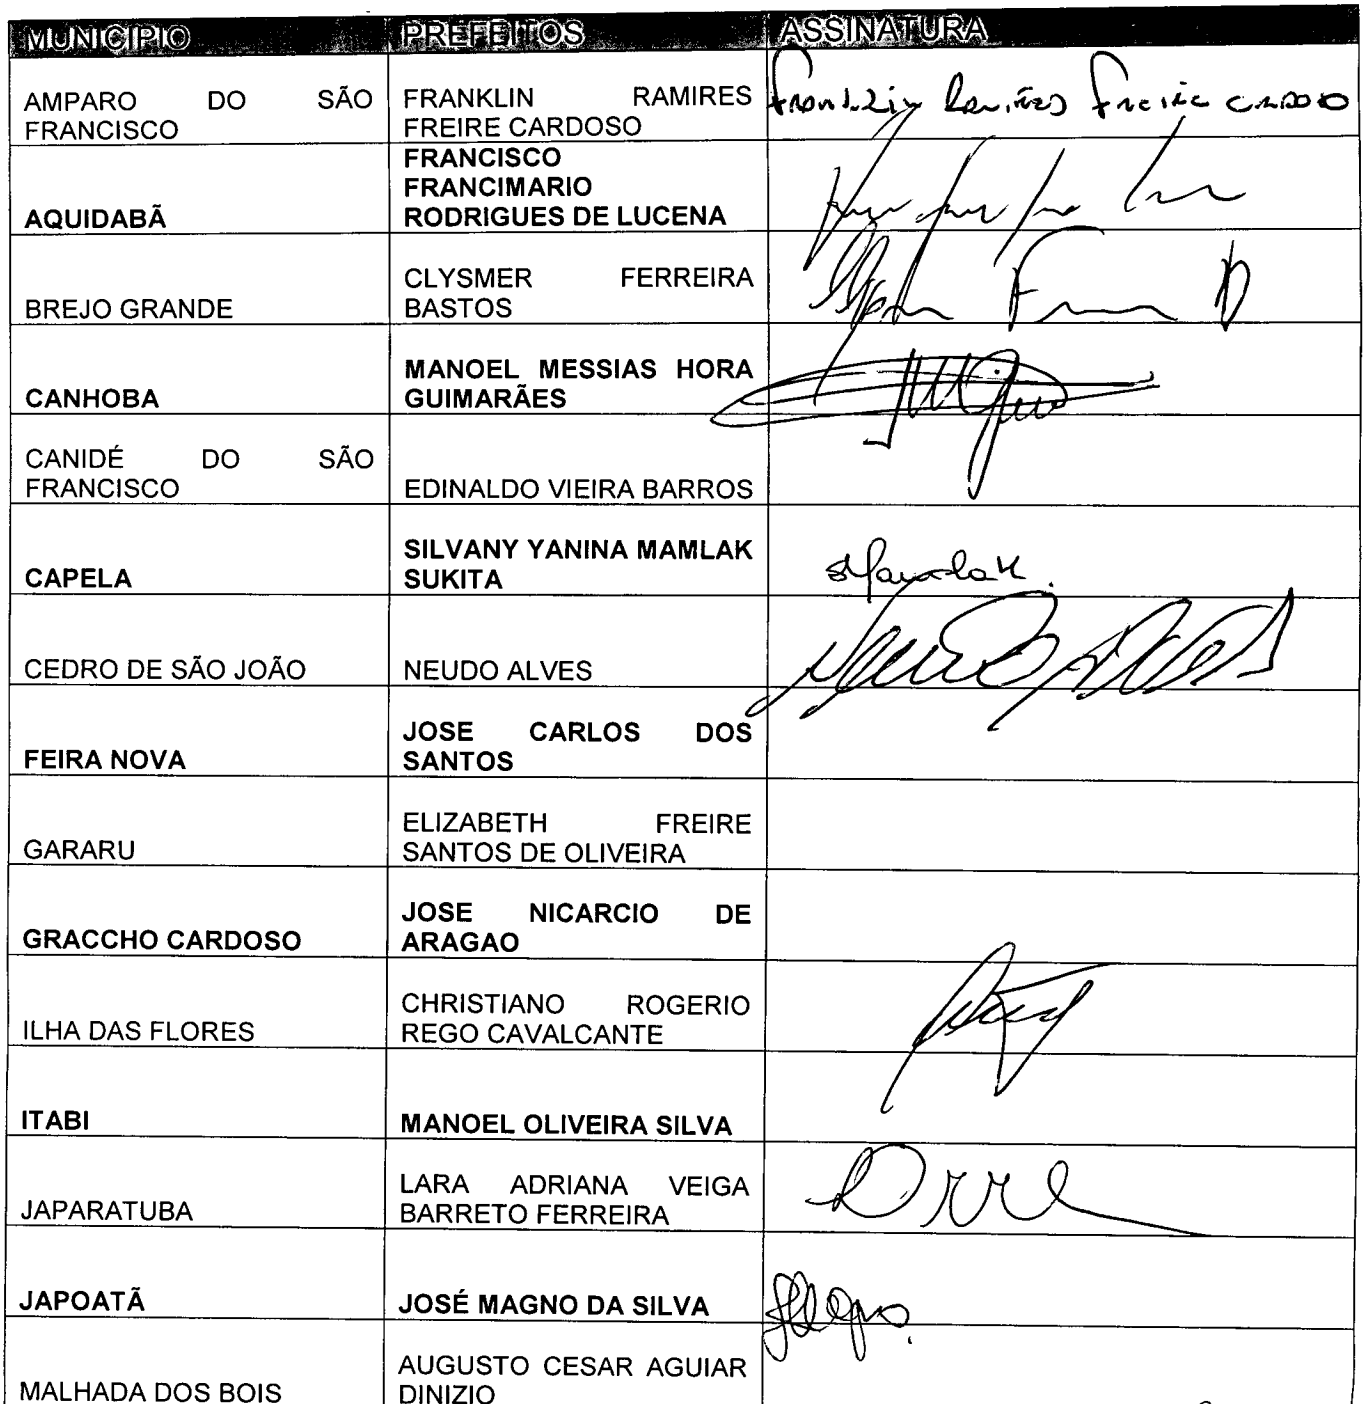 MUNICIPIO PREFEITOS ASSINATURA
AMPARO DO SÃO
FRANCISCO
FRANKLIN RAMIRES
FREIRE CARDOSO
Franklin Ramires Freire Cardoso
AQUIDABÃ
FRANCISCO
FRANCIMARIO
RODRIGUES DE LUCENA
BREJO GRANDE
CLYSMER FERREIRA
BASTOS
CANHOBA
MANOEL MESSIAS HORA
GUIMARÃES
CANIDÉ DO SÃO
FRANCISCO
EDINALDO VIEIRA BARROS
CAPELA
SILVANY YANINA MAMLAK
SUKITA
CEDRO DE SÃO JOÃO
NEUDO ALVES
FEIRA NOVA
JOSE CARLOS DOS
SANTOS
GARARU
ELIZABETH FREIRE
SANTOS DE OLIVEIRA
GRACCHO CARDOSO
JOSE NICARCIO DE
ARAGAO
ILHA DAS FLORES
CHRISTIANO ROGERIO
REGO CAVALCANTE
ITABI
MANOEL OLIVEIRA SILVA
JAPARATUBA
LARA ADRIANA VEIGA
BARRETO FERREIRA
JAPOATÃ
JOSÉ MAGNO DA SILVA
MALHADA DOS BOIS
AUGUSTO CESAR AGUIAR
DINIZIO